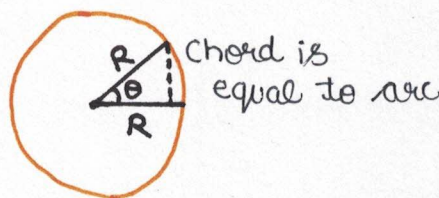 R
θ
R
Chord is
equal to arc